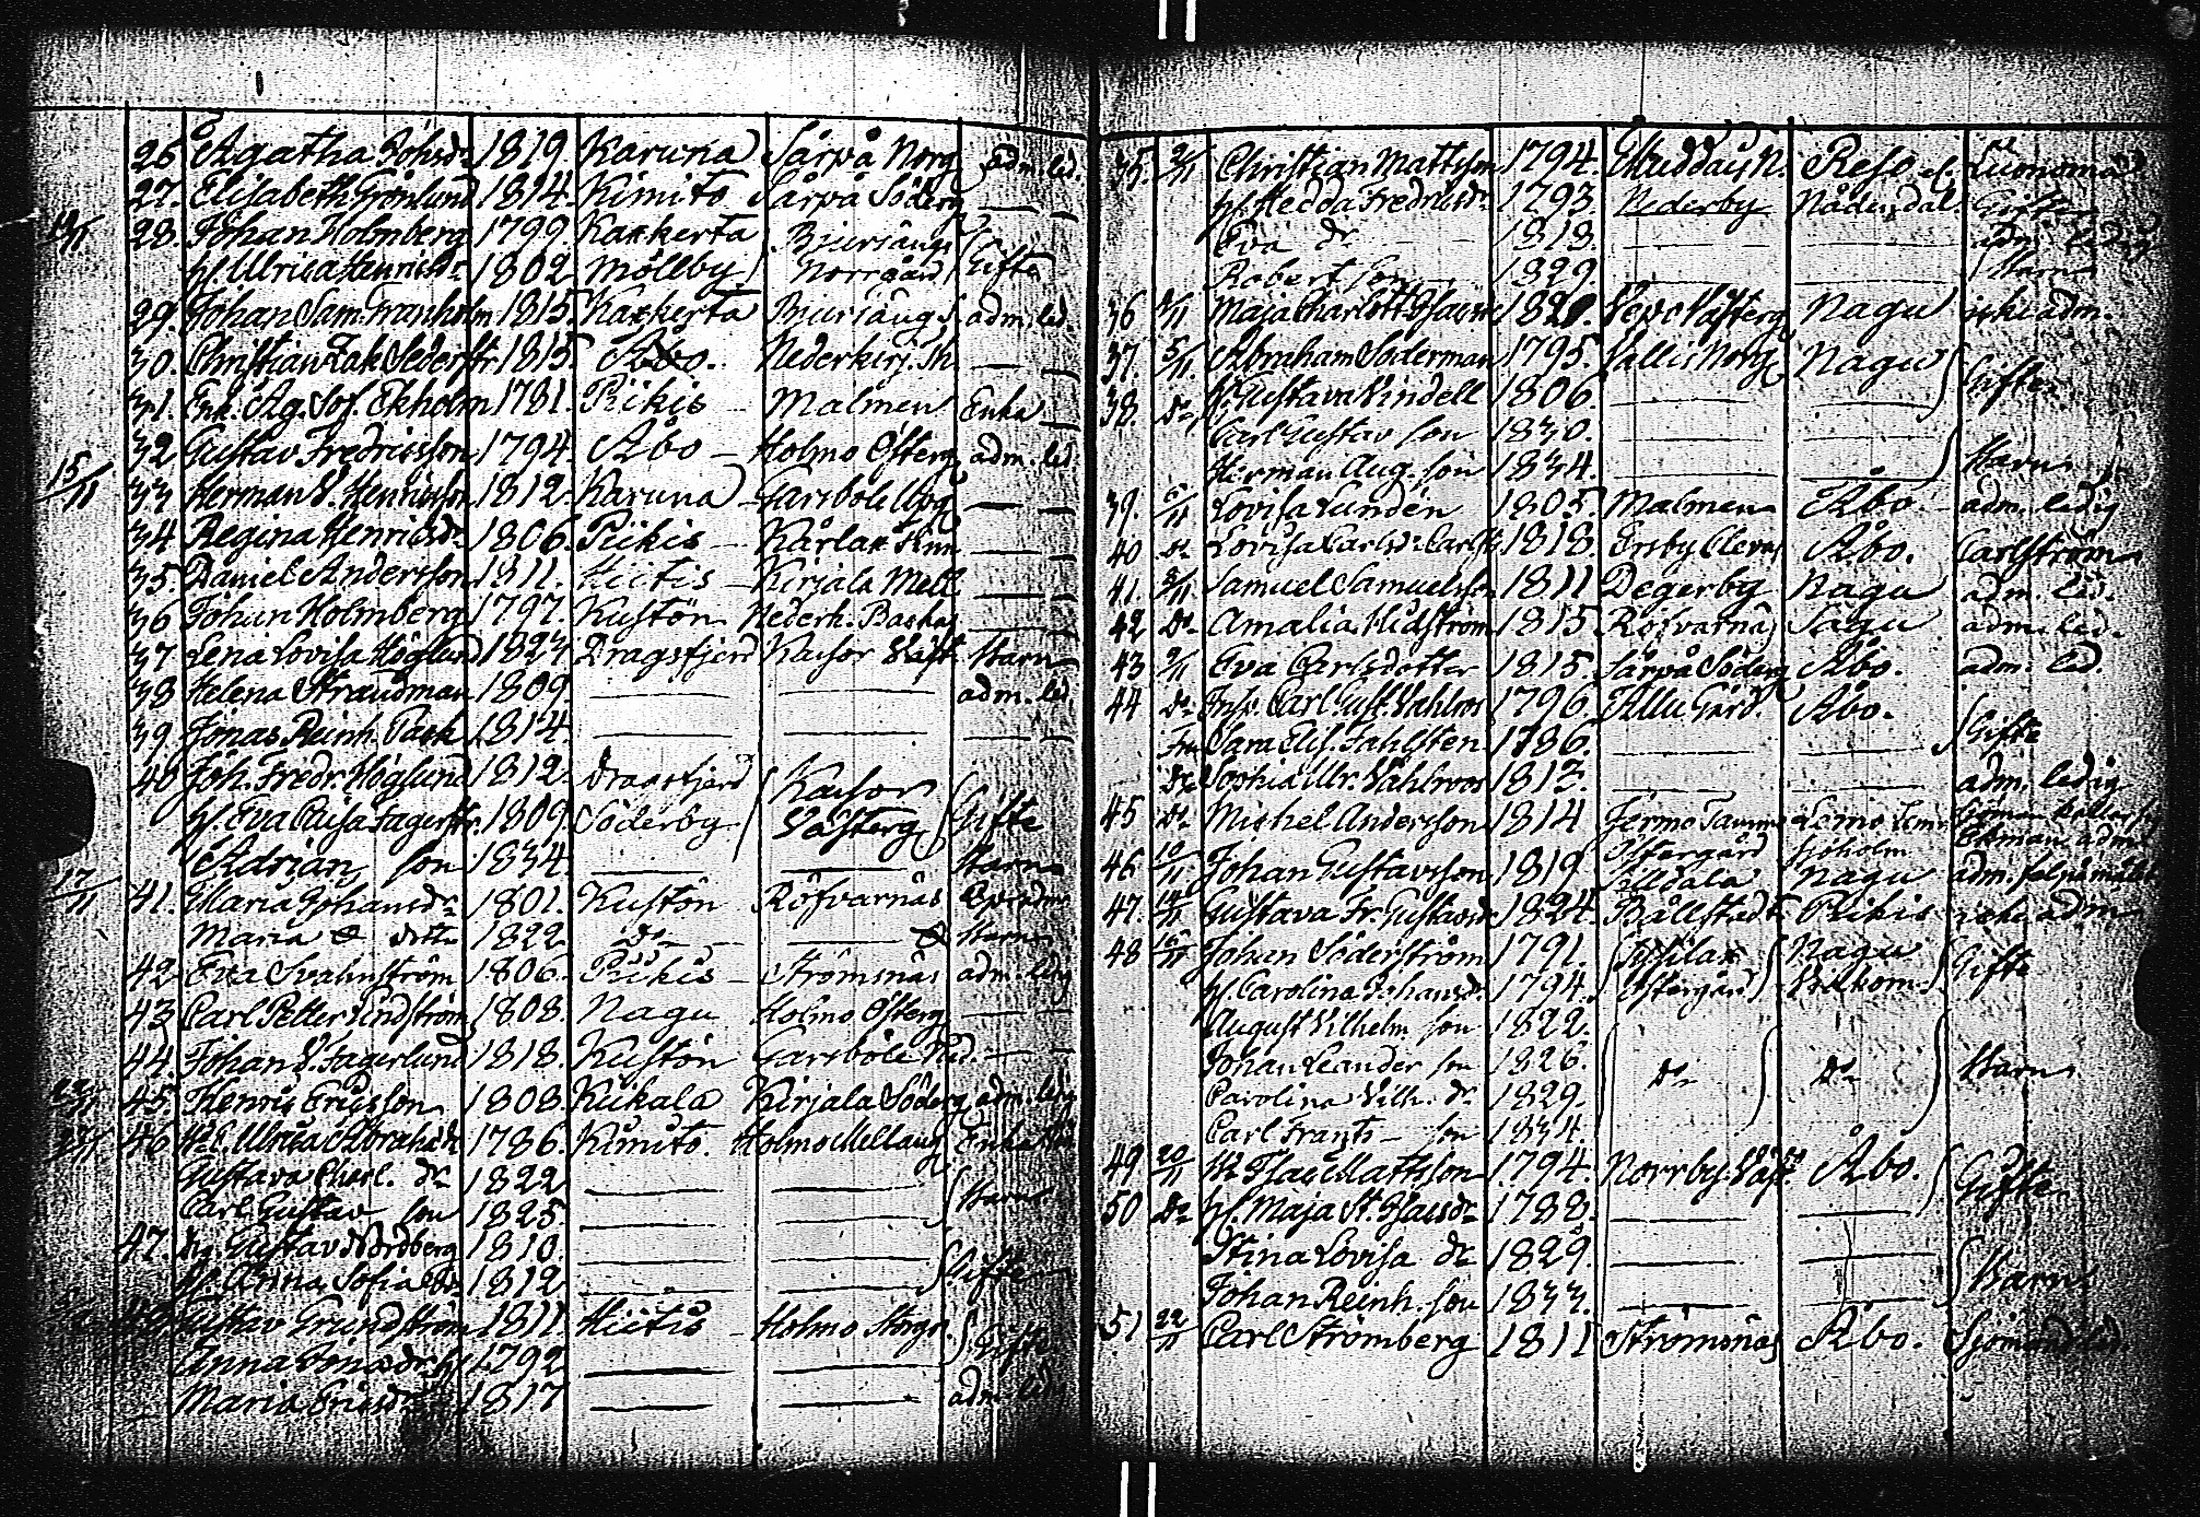 26. Agatha Johsdr 1819. Karuna Särpå Norrg adm. led.
27. Elisabeth Grönlund 1814. Kimito Särpå Söderg — —
28. Johan Holmberg 1799. Kakkerta Bjursängs Gifta
h. Ulrica Henricsdr 1802 Möllby Norrgård
29. Johan Sam. Franholm 1815 Kakkerta Bjursäng S. adm. led.
30. Christian Isak Sederstr 1815 Åbo. Nederkirj. — —
31. Enk. Ag. Sof. Ekholm 1781. Piikis Malmen Enka
32 Gustav Fredricsson 1794. Åbo — Holmo Österg adm. led.
15/11 33 Herman V. Henricsson 1812. Karuna — Garsböle Uppg — —
34 Regina Henricsdr 1806. Piikis — Kårlax — —
35. Daniel Andersson 1811. Hiitis — Kirjala Mell — —
36 Johan Holmberg 1797. Kustön Nederk. — —
37 Lena Lovisa Höglund 1823 Dragsfjerd Kaisor Väst. Barn
38 Helena Strandman 1809. — — adm. led.
39 Jonas Reinh. Pask 1814 — — — —
40 Joh. Fredr. Höglund 1812. Dragsfjerd Kaisor Gifte
h. Eva Caisa Fagerstr. 1809. Söderby Västerg
Adrian son 1834 — — Barn
17/11 41. Maria Johansdr 1801. Kustön Röfvarnäs
Maria dotter 1822 do — Barn
42 Eva Svahnström 1806. Piikis — Strömsnäs adm. ledig
43 Carl Petter Lindström 1808. Nagu Holmo Österg — —
44. Johan V. Fagerlund 1818. Kustön Garsböle Ned. — —
45. Henric Ericsson 1808. Kukala Kirjala Söderg adm. ledig
46 Ulrica Abrahdr 1786. Kimito. Holmo Mellang. Enka
Gustava Charl. dr 1822 — — Barn
Carl Gustav son 1825. — —
47. Gustav Nordberg 1810. — — Gifte
h. Anna Sofia 1812 — —
48. Gustav Grundström 1811. Hiitis — Holmo Storg. Gifte
Anna Jonasdr h 1792 — —
Maria Ericsdr 1817 — — adm. led.
35. 2/11 Christian Mattsson 1794. Muddais N. Reso
h. Hedda Fredricsdr 1793 Nederby Nådendal Gifte
Eva dr — — 1818. — — adm. ledig
Robert son 1829. — — Barn
36 Maja Charlott. Isacsdr 1820. Västerg Nagu icke adm.
37. 5/11 Abraham Söderman 1795. Vallis Norrg Nagu Gifte
38. do h. Gustava Lindell 1806. — —
Carl Gustav son 1830. — —
Herman Aug. son 1834. — — Barn
39. 6/11 Lovisa Lundén 1805. Malmen Åbo — adm. ledig
40 do Lovisa Carlsdr Carlstr 1818. Ersby Åbo. Carlström
41. 8/11 Samuel Samuelsson 1811 Degerby Nagu adm. led.
42 do Amalia Hidström 1815 Röfvarnäs Sagu adm. led.
43 9/11 Eva Carlsdotter 1815. Särpå Söderg Åbo. adm. led.
44 do Carl Gust. Vahlroos 1796. Allu Gård. Åbo. Gifte
Fru Sara Elis. Fahlsten 1786. — —
do Sophia Ulr. Vahlroos 1813. — — adm. ledig
45 do Michel Andersson 1814 Jermo Lemo
Ekman adm.
46 10/11 Johan Gustavsson 1819 Östergård Sjöholm
Silldala Nagu adm.
47. 14/11 Gustava Fr. Gustavsdr 1824. Bällstedt Piikis icke adm.
48 Johan Söderström 1791. Nagu Gifte
h. Carolina Johansdr 1794. Östergård
August Vilhelm son 1822.
Johan Leander son 1826. do do Barn
Carolina Vilh. dr 1829.
Carl Frants — son 1834.
49 20/11 Isac Mattsson 1794. Norrby Väst. Åbo. Gifte
50 do h. Maja St. Isacsdr 1788. — —
Stina Lovisa dr 1829. — —
Johan Reinh. son 1833. — — Barn
51 22/11 Carl Strömberg 1811 Strömsnäs Åbo. Sjöman led.